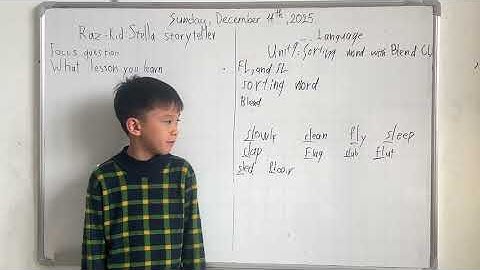 Sunday, December 14th, 2025
Raz-Kid: Stella storyteller
Focus question
What lesson you learn
Language
Unit 9: Sorting word with Blend CL,
FL, and SL
sorting word
Blend
slowly clean fly sleep
clap Flag club flat
sled floor